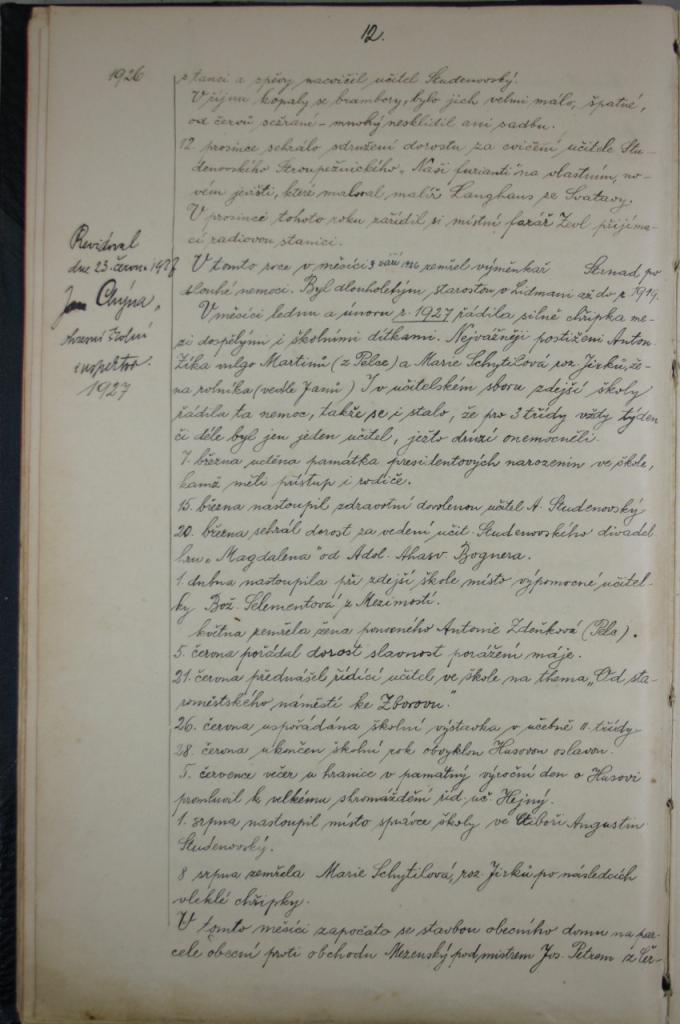 12.
1926
s tanci a zpěvy nacvičil učitel Studenovský.
V říjnu kopaly se brambory, bylo jich velmi málo, špatné,
od červů sežrané – mnohý nesklidil ani sadbu.
12 prosince sehrálo sdružení dorostu za cvičení učitele Stu-
denovského Stroupežnického „Naši furianti" na vlastním, no-
vém jevišti, které maloval malíř Langhans ze Svatavy.
V prosinci tohoto roku zařídil si místní farář Zevl přijíma-
cí radiovou stanici.
Revidoval
dne 23. června 1927
Jan Chýna,
okresní školní
inspektor.
1927
V tomto roce v měsíci 9 září 1926 zemřel výměnkář Strnad, po
dlouhé nemoci. Byl dlouholetým starostou v Lidmani až do r 1919.
V měsíci lednu a únoru r. 1927 řádila silně chřipka me-
zi dospělými i školními dítkami. Nejvážněji postiženi Anton.
Zíka vulgo Martinů (z Pelce) a Marie Schytilová roz. Jirků, že-
na rolníka (vedle Janů) I v učitelském sboru zdejší školy
řádila ta nemoc, takže se i stalo, že pro 3 třídy vždy týden
či déle byl jen jeden učitel, ježto druzí onemocněli.
7. března uctěna památka presidentových narozenin ve škole,
kamž měli přístup i rodiče.
15. března nastoupil zdravotní dovolenou učitel A. Studenovský
20. března sehrál dorost za vedení učit. Studenovského divadel
hru „Magdalena" od Adol. Ahasv. Bognera.
1. dubna nastoupila při zdejší škole místo výpomocné učitel-
ky Bož. Selementová z Mezimostí.
května zemřela žena Antonie Zdeňková (Pela).
5. června pořádal dorost slavnost porážení máje.
21. června přednášel řídící učitel ve škole na thema „Od sta-
roměstského náměstí ke Zborovu."
26. června uspořádána školní výstavka v učebně II. třídy
28. června ukončen školní rok obvyklou Husovou oslavou.
5. července večer u hranice v památný výroční den o Husovi
promluvil k velkému shromáždění říd. uč. Hejný.
1. srpna nastoupil místo správce školy ve Ctiboři Augustin
Studenovský.
8 srpna zemřela Marie Schytilová, roz. Jirků po následcích
vleklé chřipky.
V tomto měsíci započato se stavbou obecního domu na par-
cele obecní proti obchodu Mezenský pod mistrem Jos. Petrem z Čer-